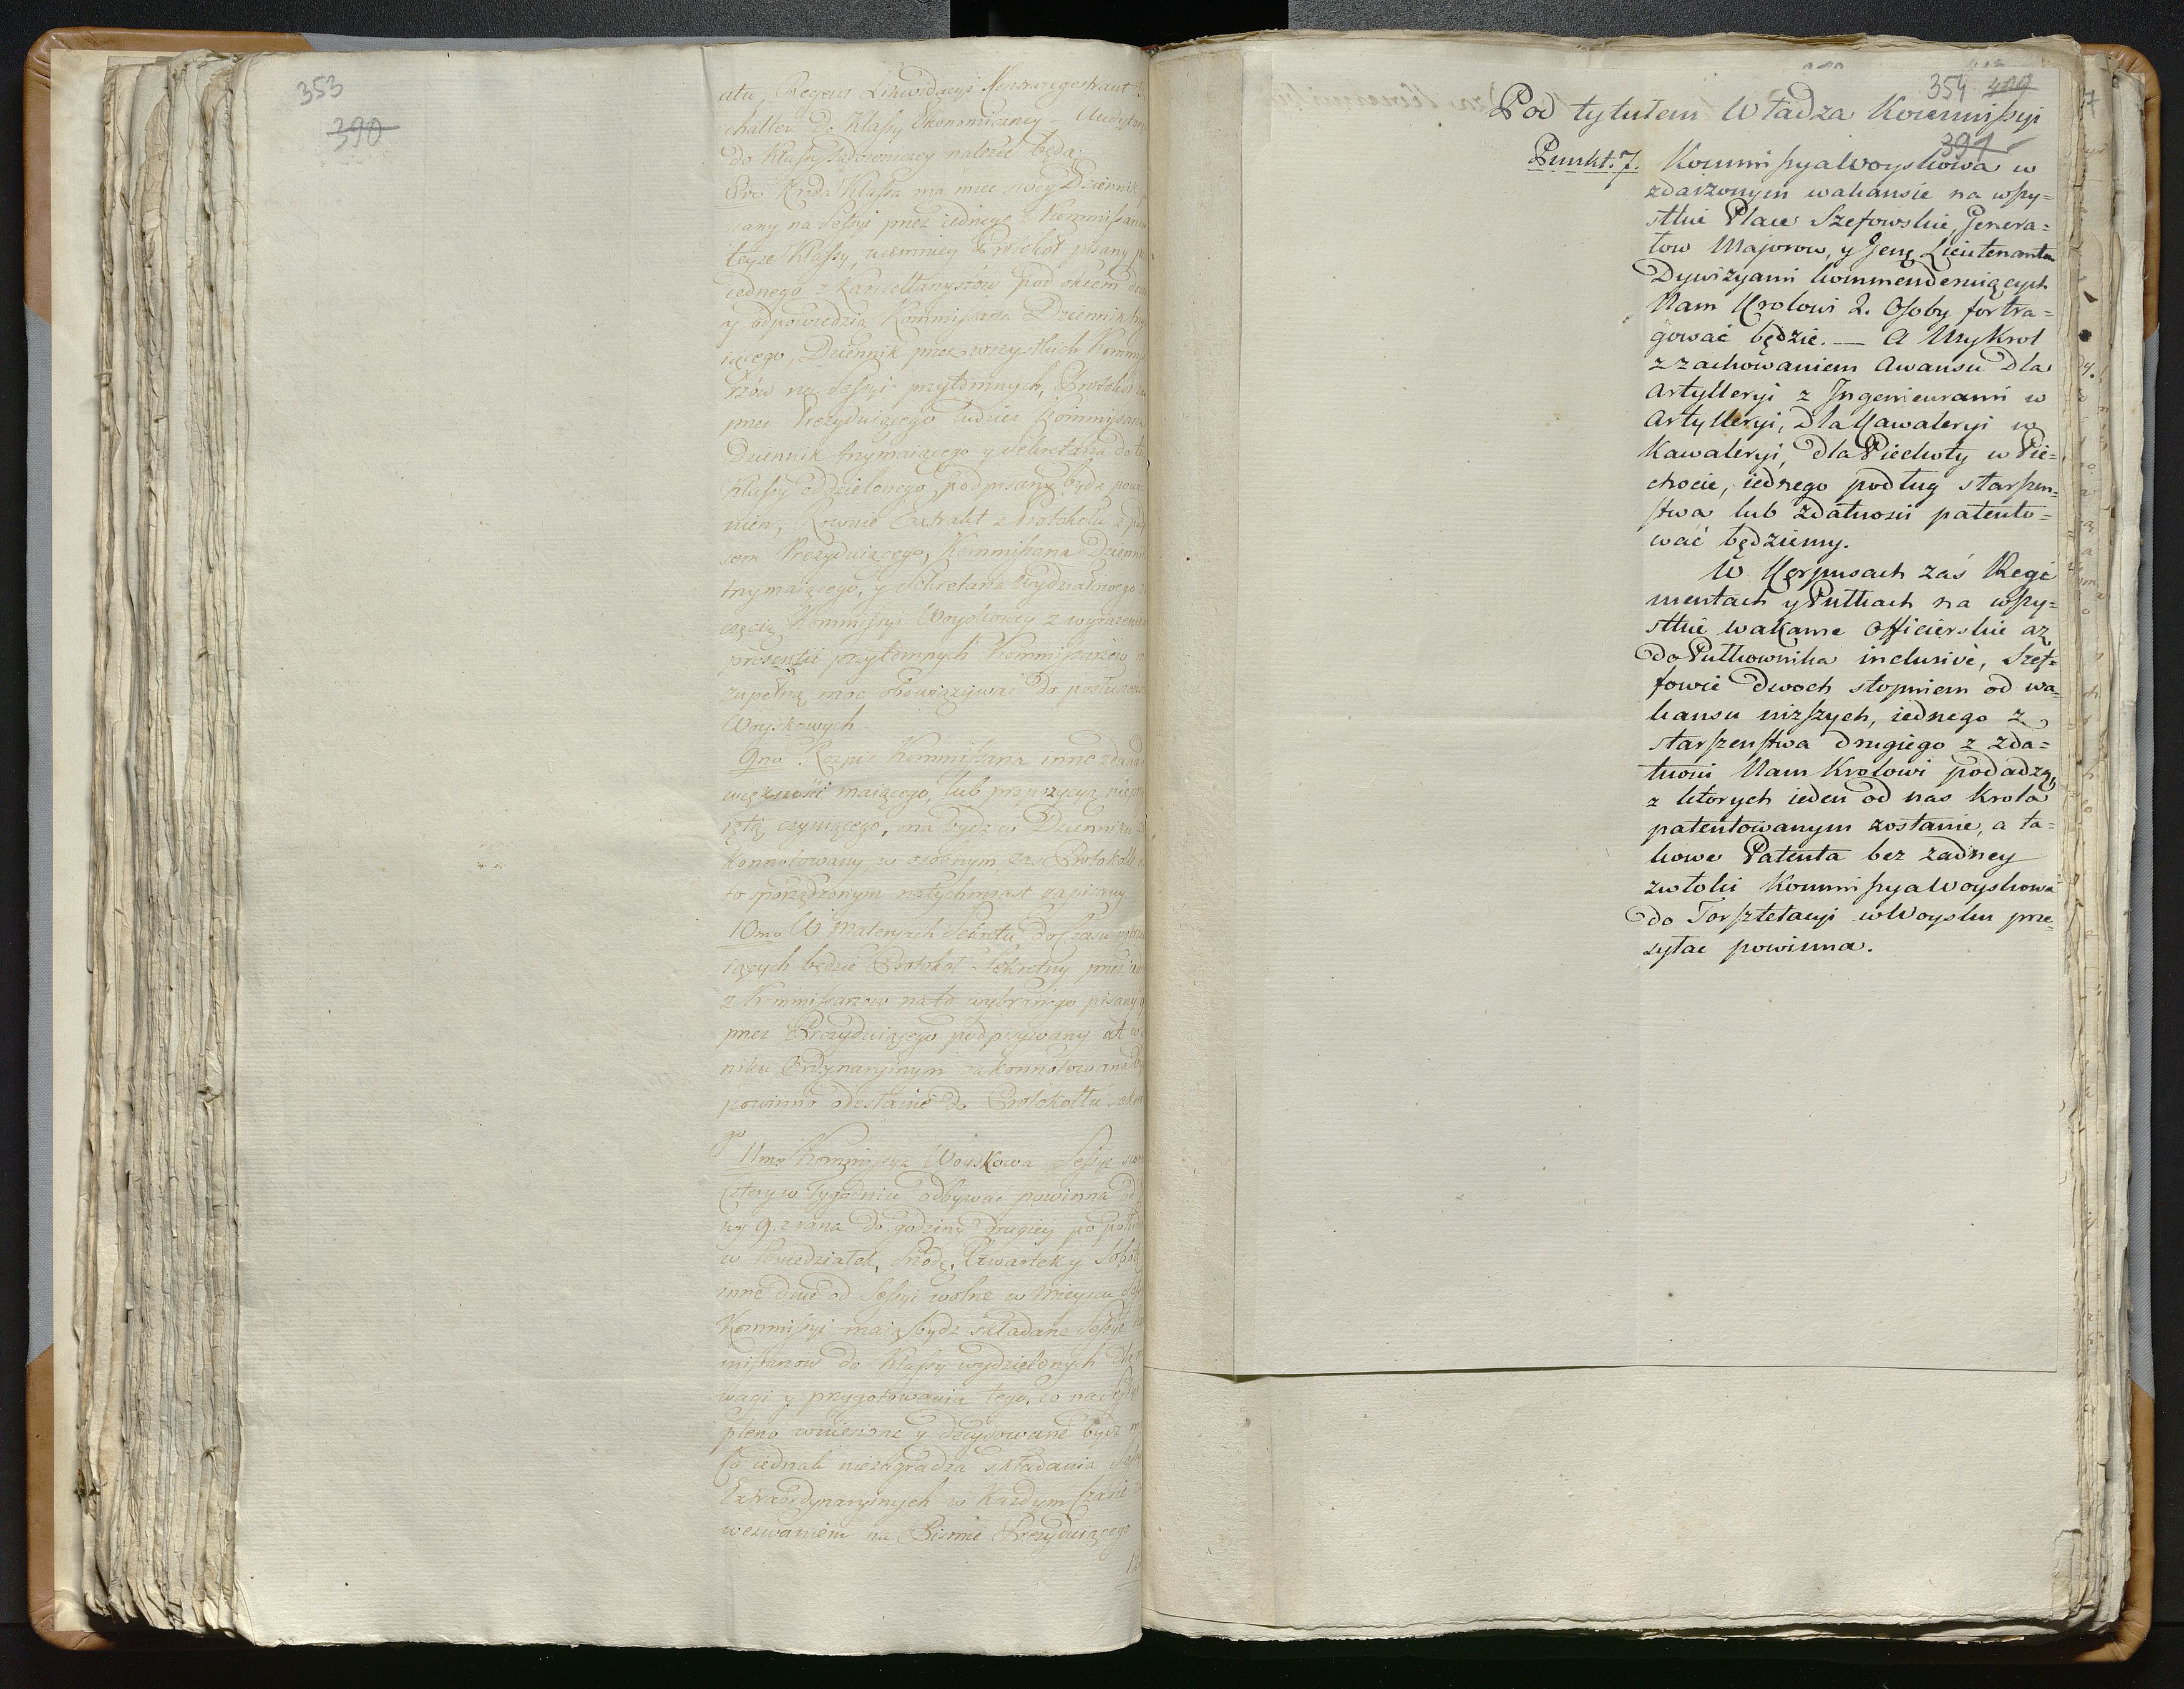 353
390
atu, Regens Likwidacyi Kontraregestrant
chalter do Klassy Ekonomiczney – Audytor
do Klassy Sądowniczey należeć będą.
8vo Każda Klassa ma mieć swoy Dziennik
sany na Sessyi przez iednego z Kommissarz
teyże Klassy, niemniey Protokół pisany p
iednego z Kancellarystów pod okiem do
y odpowiedzią Kommissarza Dziennik trzy
iącego, Dziennik przez wszystkich Kommis
rzów na Sessyi przytomnych, Protokół za
przez Prezyduiącego tudzież Kommissarza
Dziennik trzymaiącego y Sekretarza do te
Klassy oddzielonego podpisany bydz powi
nien, Rownie Extrakt z Protokołu z po
sem Prezyduiącego, Kommissarza Dzienni
trzymaiącego, y Sekretarza Wydziałowego z
częcią Kommissyi Woyskowey z wyrażeniem
prezencii przytomnych Kommissarzów m
zupełną moc obowiązywać do posłuszeń
Woyskowych.
9no Rozpis Kommissarza inne zdanie
większości maiącego, lub propozycyą niepr
iętą czyniącego, ma bydz w Dzienniku
konnotowany w osobnym zaś Protokole n
to sporządzonym natychmiast zapisany
10mo W Materyach Sekretu do Czasu wybra
iących będzie Protokół Sekretny przez ied
z Kommissarzow na to wybranego pisany y
przez Prezyduiącego podpisywany a w
niku Ordynaryinym zakonnotowane b
powinno odesłanie do Protokołłu sekre
go
11mo Kommissya Woyskowa Sessye swo
cztery w Tygodniu odbywać powinna od
ny 9. zrana do godziny drugiey po połu
w Poniedziałek, Srzodę, Czwartek y Sobotę
inne dnie od Sessyi wolne w Mieyscu Ses
Kommissyi maią bydz składane Sessye
missarzow do Klassy wydzielonych dla
wagi y przygotowania tego, co na Sessyi
pleno wniesione y decydowane bydz m
Co iednak niezagradza składania Sessyi
Extraordynaryinych w każdym Czasie z
wezwaniem na Pismie Prezyduiącego
12
354 400
Pod tytułem Władza Kommissyi
391
Punkt. 7. Kommissya Woyskowa w
zdarzonym wakansie na wszy=
stkie Place Szefowskie, Genera=
łow Majorow, y Gen. Lieutenantow
Dywizyami kommenderuiących
Nam Krolowi 2. Osoby fortra=
gować będzie. — A My Krol
z zachowaniem Awansu dla
Artylleryi z Ingenieurami w
Artylleryi, dla Kawaleryi w
Kawaleryi, dla Piechoty w Pie=
chocie, iednego podług starszen=
stwa lub zdatnosci patento=
wać będziemy.
W Korpusach zaś Regi
mentach y Pułkach na wszy=
stkie wakanse Officierskie aż
do Pułkownika inclusivè, Szef=
fowie dwoch stopniem od wa=
kansu niższych, iednego z
starszenstwa drugiego z zda=
tnosci Nam Krolowi podadzą,
z ktorych ieden od nas Krola
patentowanym zostanie, a ta=
kowe Patenta bez żadney
zwłoki Kommissya Woyskowa
do Forsztelacyi w Woysku prze=
syłac powinna.